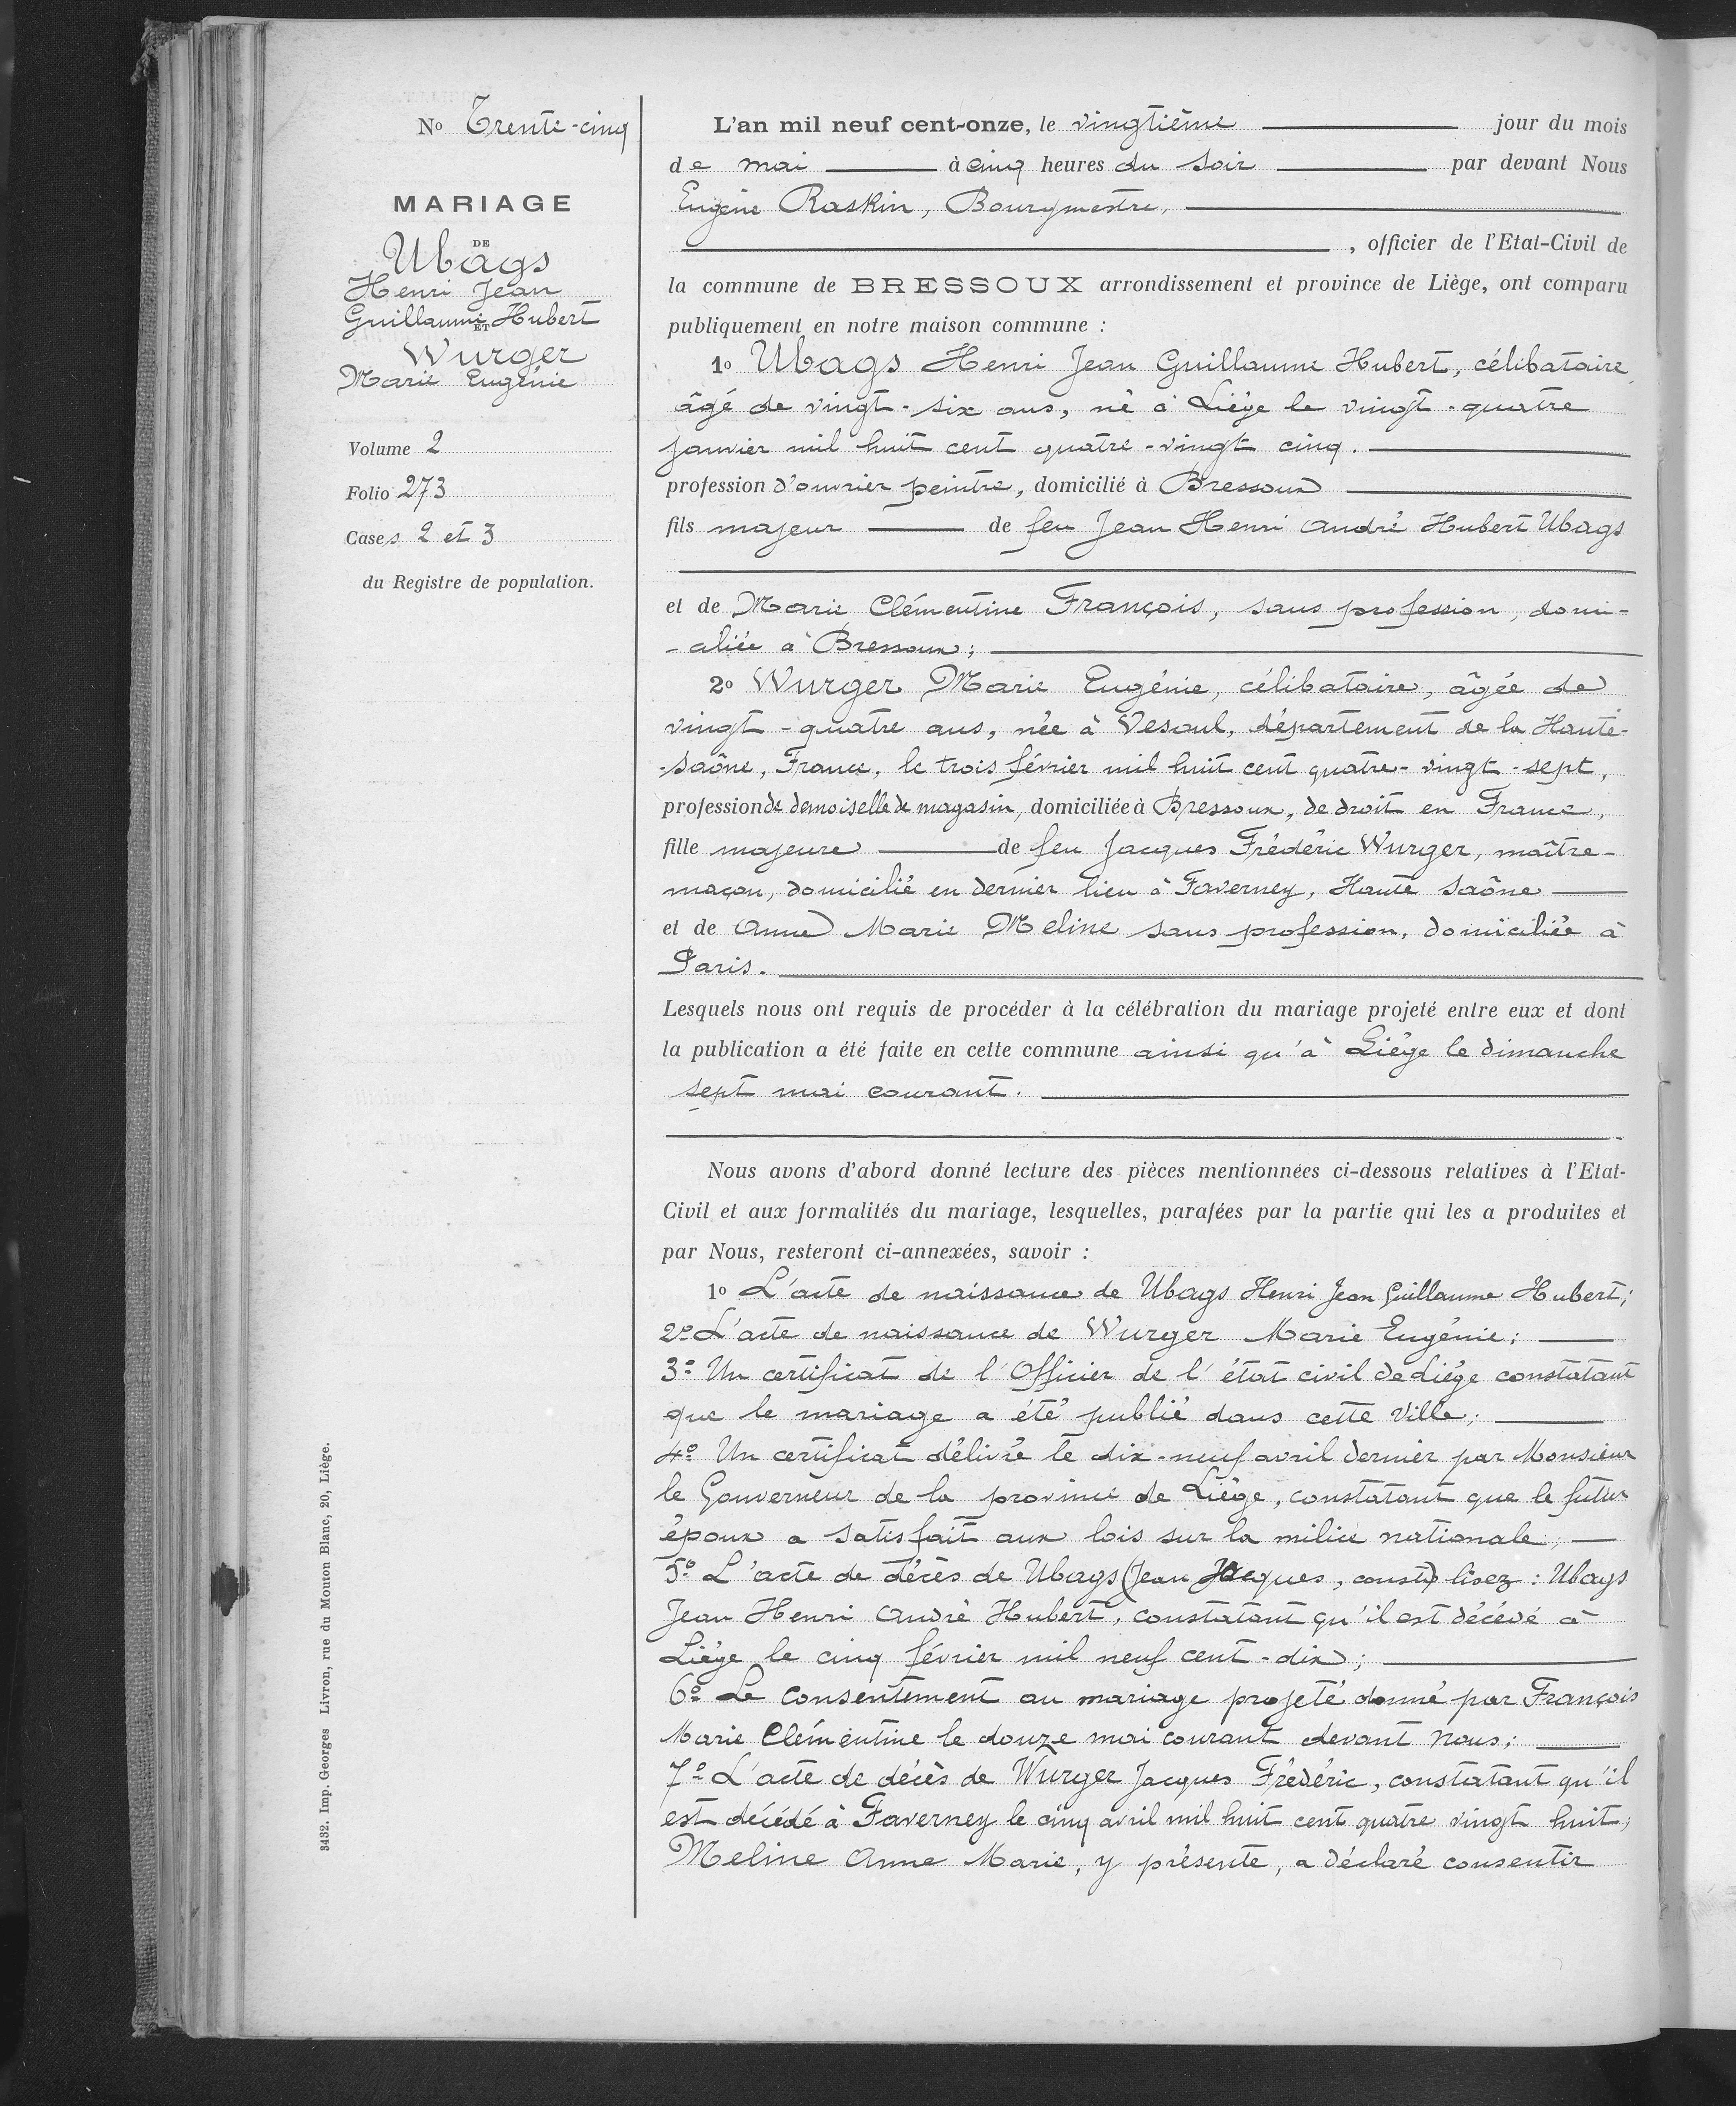 No Trente-cinq
MARIAGE
DE
Ubags
Henri Jean
Guillaume Hubert
ET
Wurger
Marie Eugénie
Volume 2
Folio 273
Cases 2 et 3
du Registre de population.
3432. Imp. Georges Livron, rue du Mouton Blanc, 20, Liège.
L'an mil neuf cent-onze, le vingtième jour du mois
de mai à cinq heures du soir par devant Nous
Eugène Raskin, Bourgmestre,
, officier de l'Etat-Civil de
la commune de BRESSOUX arrondissement et province de Liége, ont comparu
publiquement en notre maison commune :
1o Ubags Henri Jean Guillaume Hubert, célibataire,
âgé de vingt-six ans, né à Liége le vingt-quatre
janvier mil huit cent quatre-vingt cinq.
profession d'ouvrier peintre, domicilié à Bressoux
fils majeur de feu Jean Henri André Hubert Ubags
et de Marie Clémentine François, sans profession, domi-
-ciliée à Bressoux;
2o Wurger Marie Eugénie, célibataire, âgée de
vingt-quatre ans, née à Vesoul, département de la Haute-
-Saône, France, le trois février mil huit cent quatre-vingt-sept,
profession de demoiselle de magasin, domiciliée à Bressoux, de droit en France,
fille majeure de feu Jacques Frédéric Wurger, maître-
maçon, domicilié en dernier lieu à Faverney, Haute Saône
et de Anne Marie Meline sans profession, domiciliée à
Paris.
Lesquels nous ont requis de procéder à la célébration du mariage projeté entre eux et dont
la publication a été faite en cette commune ainsi qu'à Liége le dimanche
sept mai courant.
Nous avons d'abord donné lecture des pièces mentionnées ci-dessous relatives à l'Etat-
Civil et aux formalités du mariage, lesquelles, parafées par la partie qui les a produites et
par Nous, resteront ci-annexées, savoir :
1o L'acte de naissance de Ubags Henri Jean Guillaume Hubert;
2o L'acte de naissance de Wurger Marie Eugénie;
3o Un certificat de l'Officier de l'état civil de Liége constatant
que le mariage a été publié dans cette Ville;
4o Un certificat délivré le dix-neuf avril dernier par Monsieur
le Gouverneur de la province de Liége, constatant que le futur
époux a satisfait aux lois sur la milice nationale;
5o L'acte de décès de Ubags (Jean Jacques, const) lisez : Ubags
Jean Henri André Hubert, constatant qu'il est décédé à
Liége le cinq février mil neuf cent-dix;
6o Le consentement au mariage projeté donné par François
Marie Clémentine le douze mai courant devant Nous;
7o L'acte de décès de Wurger Jacques Frédéric, constatant qu'il
est décédé à Faverney le cinq avril mil huit cent quatre vingt huit;
Meline Anne Marie, y présente, a déclaré consentir